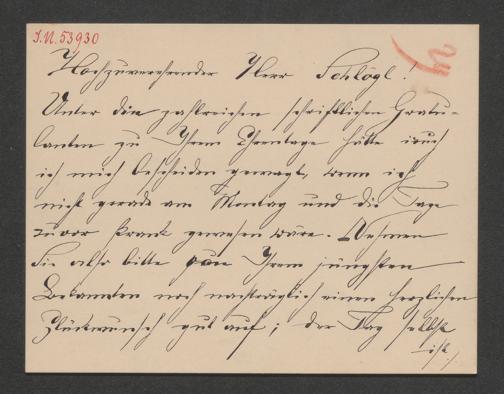 J.N. 53930
Hochzuverehrender Herr Schlögl!
Unter den zahlreichen schriftlichen Gratu-
lanten zu Ihrem Ehrentage hätte auch
ich mich bescheiden gewagt, wenn ich
nicht gerade am Montag und die Tage
zuvor krank gewesen wäre. Nehmen
Sie also bitte von Ihrem jüngsten
Bekannten noch nachträglich einen herzlichen
Glückwunsch gut auf; der Tag selbst
ist